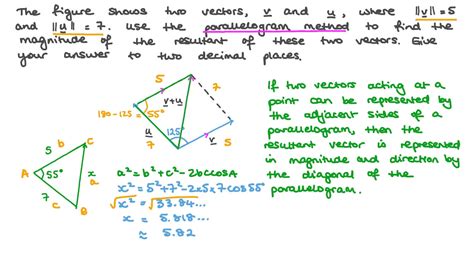 The figure shows two vectors, v and u, where ||v|| = 5
and ||u|| = 7. Use the parallelogram method to find the
magnitude of the resultant of these two vectors. Give
your answer to two decimal places.
5
7
v+u
180-125 = 55°
u
7
125°
v
5
If two vectors acting at a
point can be represented by
the adjacent sides of a
parallelogram, then the
resultant vector is represented
in magnitude and direction by
the diagonal of the
parallelogram.
C
b
5
A
55°
x
a
7
c
B
a² = b² + c² - 2bccosA
x² = 5² + 7² - 2x5x7cos55°
√x² = √33.84...
x = 5.818...
≈ 5.82